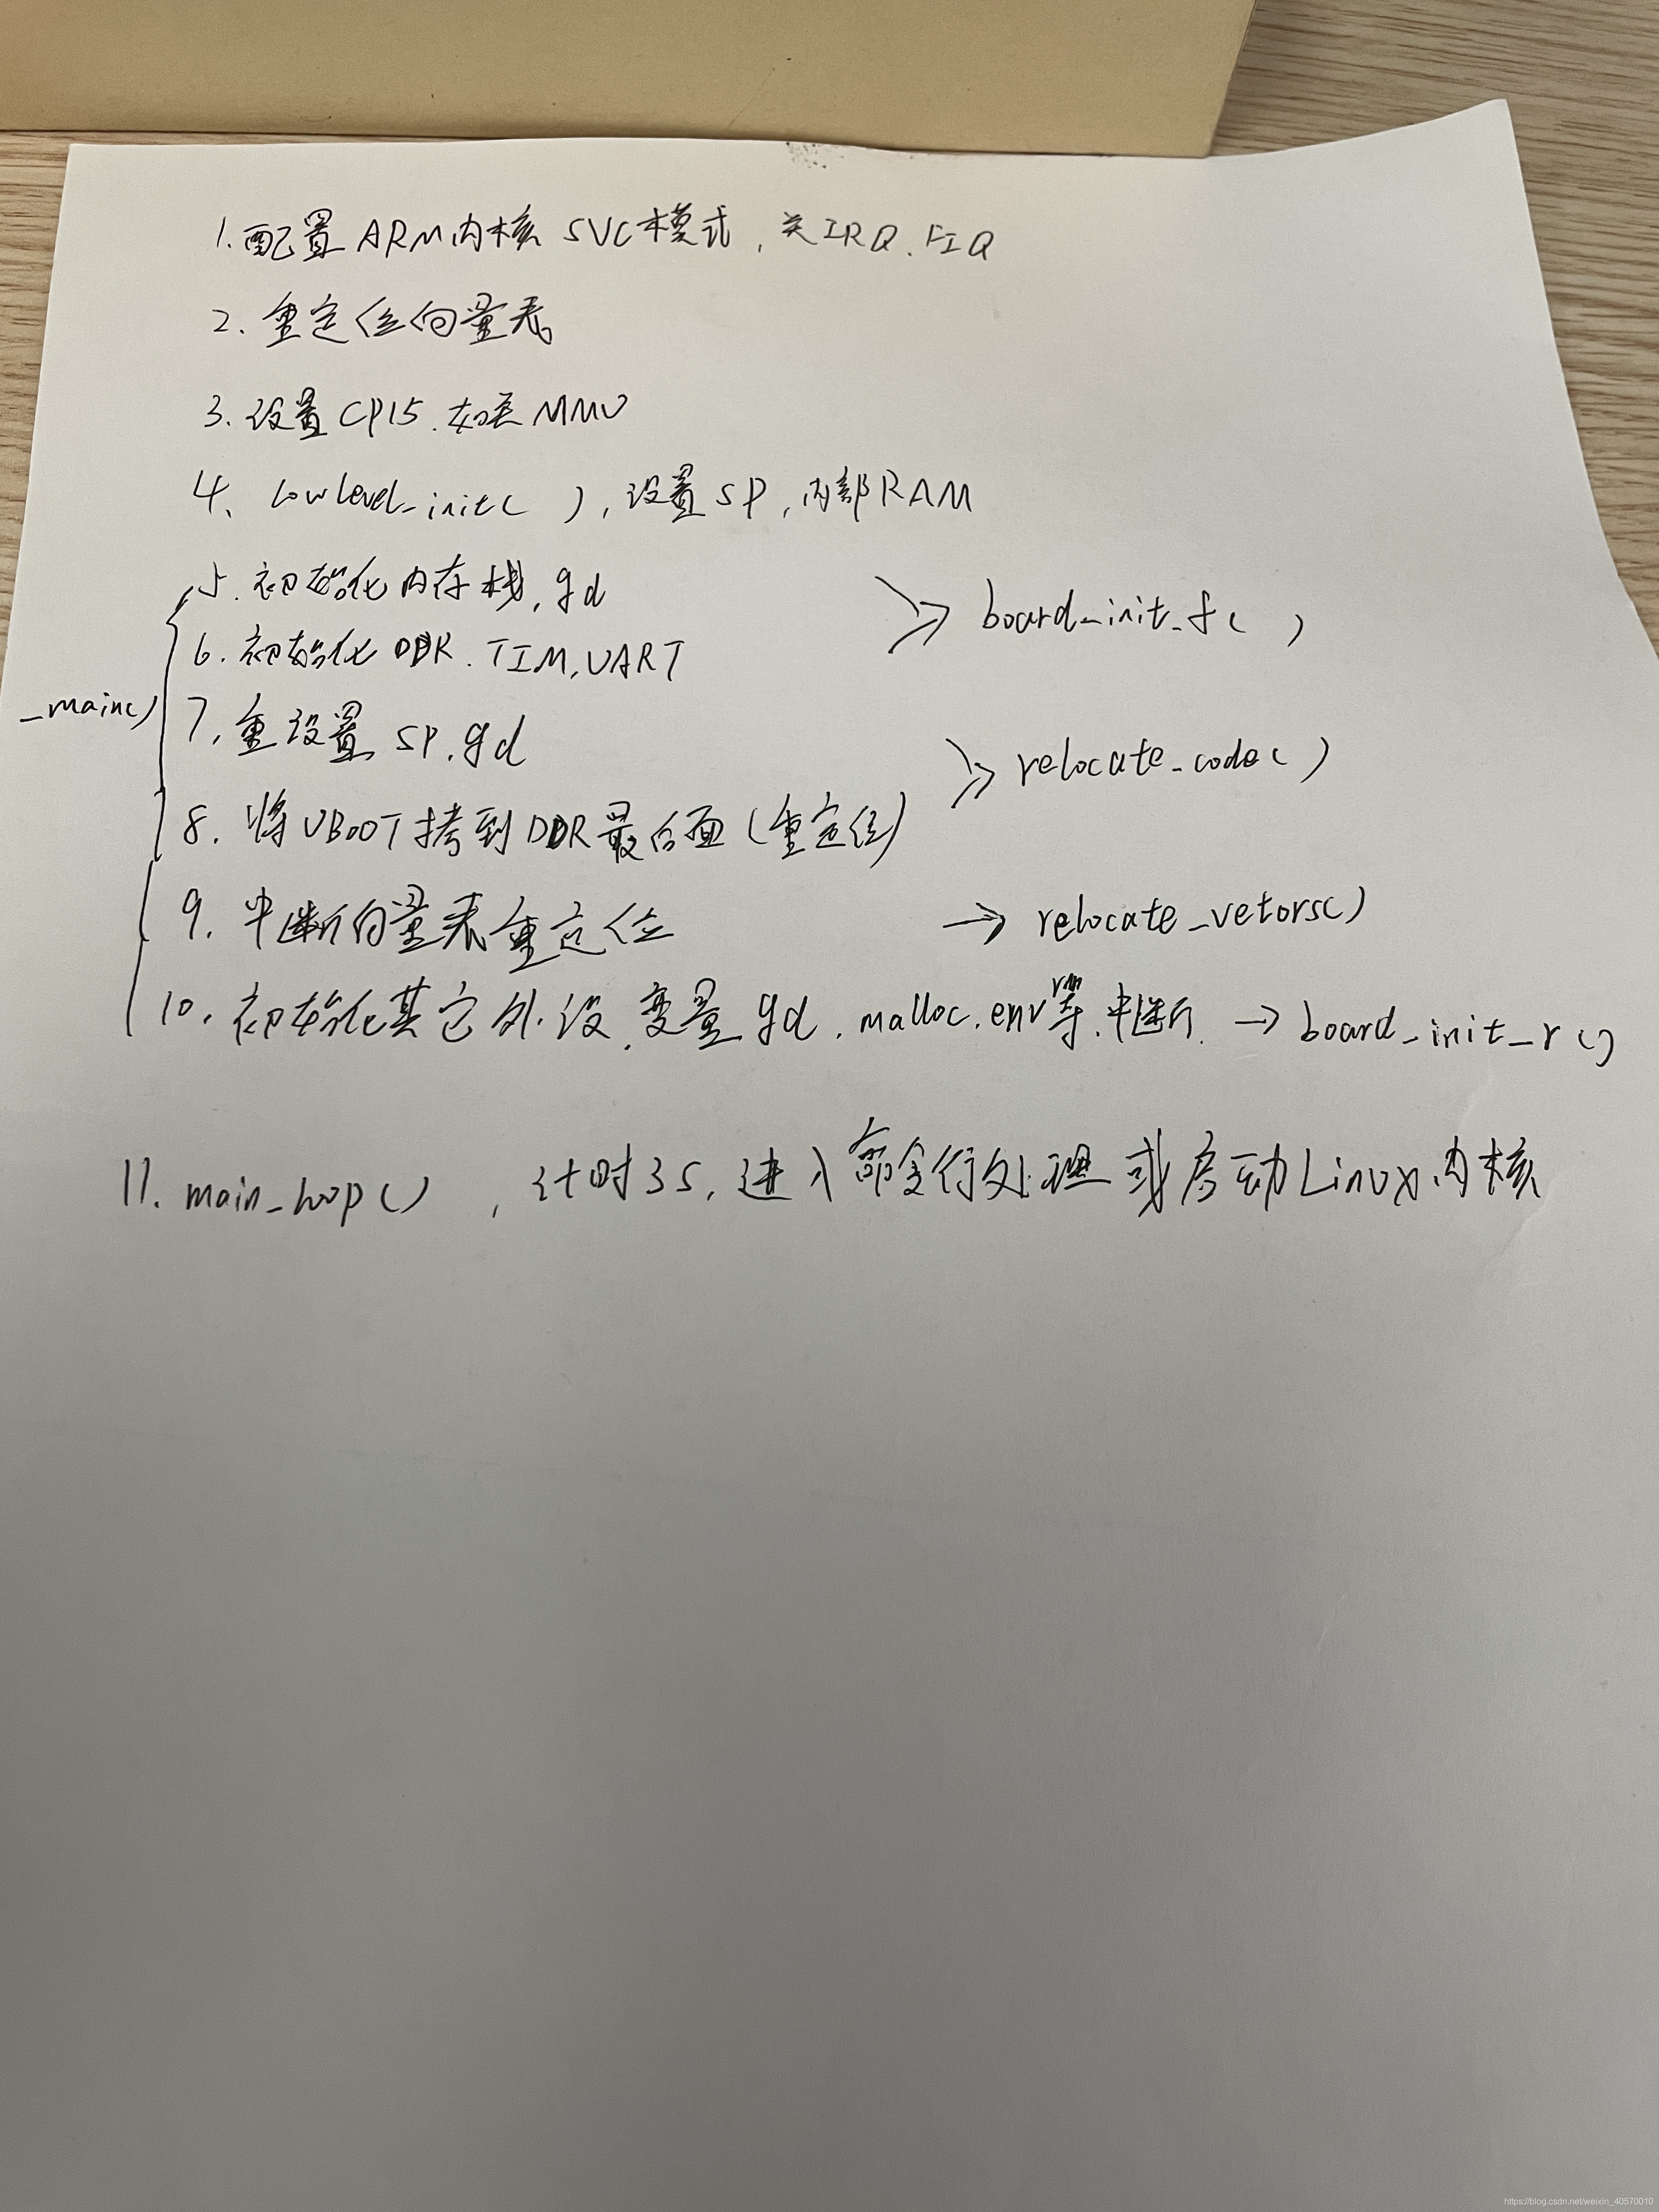 1.配置ARM内核SVC模式,关IRQ.FIQ
2.重定位向量表
3.设置CP15.如关MMU
4、lowlevel_init( ),设置SP,内部RAM
5.初始化内存栈.gd
board_init_f( )
6.初始化DDR.TIM.UART
_main()
7.重设置SP.gd
relocate_code( )
8.将UBOOT拷到DDR最后面(重定位)
9.中断向量表重定位 → relocate_vetors()
10.初始化其它外设.变量gd.malloc.env等.中断. → board_init_r()
11.main_loop() ,计时3S,进入命令行处理或启动Linux内核
https://blog.csdn.net/weixin_40570010